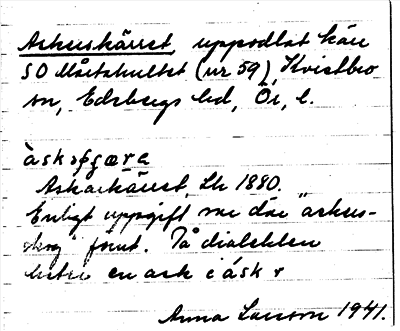 Askerskärret, uppodlat kärr
SO Mårtshultet (nr 59), Kvistbro
sn, Edsbergs hd, Ör. l.
àskǝṣçæra
Askarkärret, Lk 1880.
Enligt uppgift var där "asker-
skog" förut. På dialekten
heter en ask i ásk r
Anna Larsson 1941.